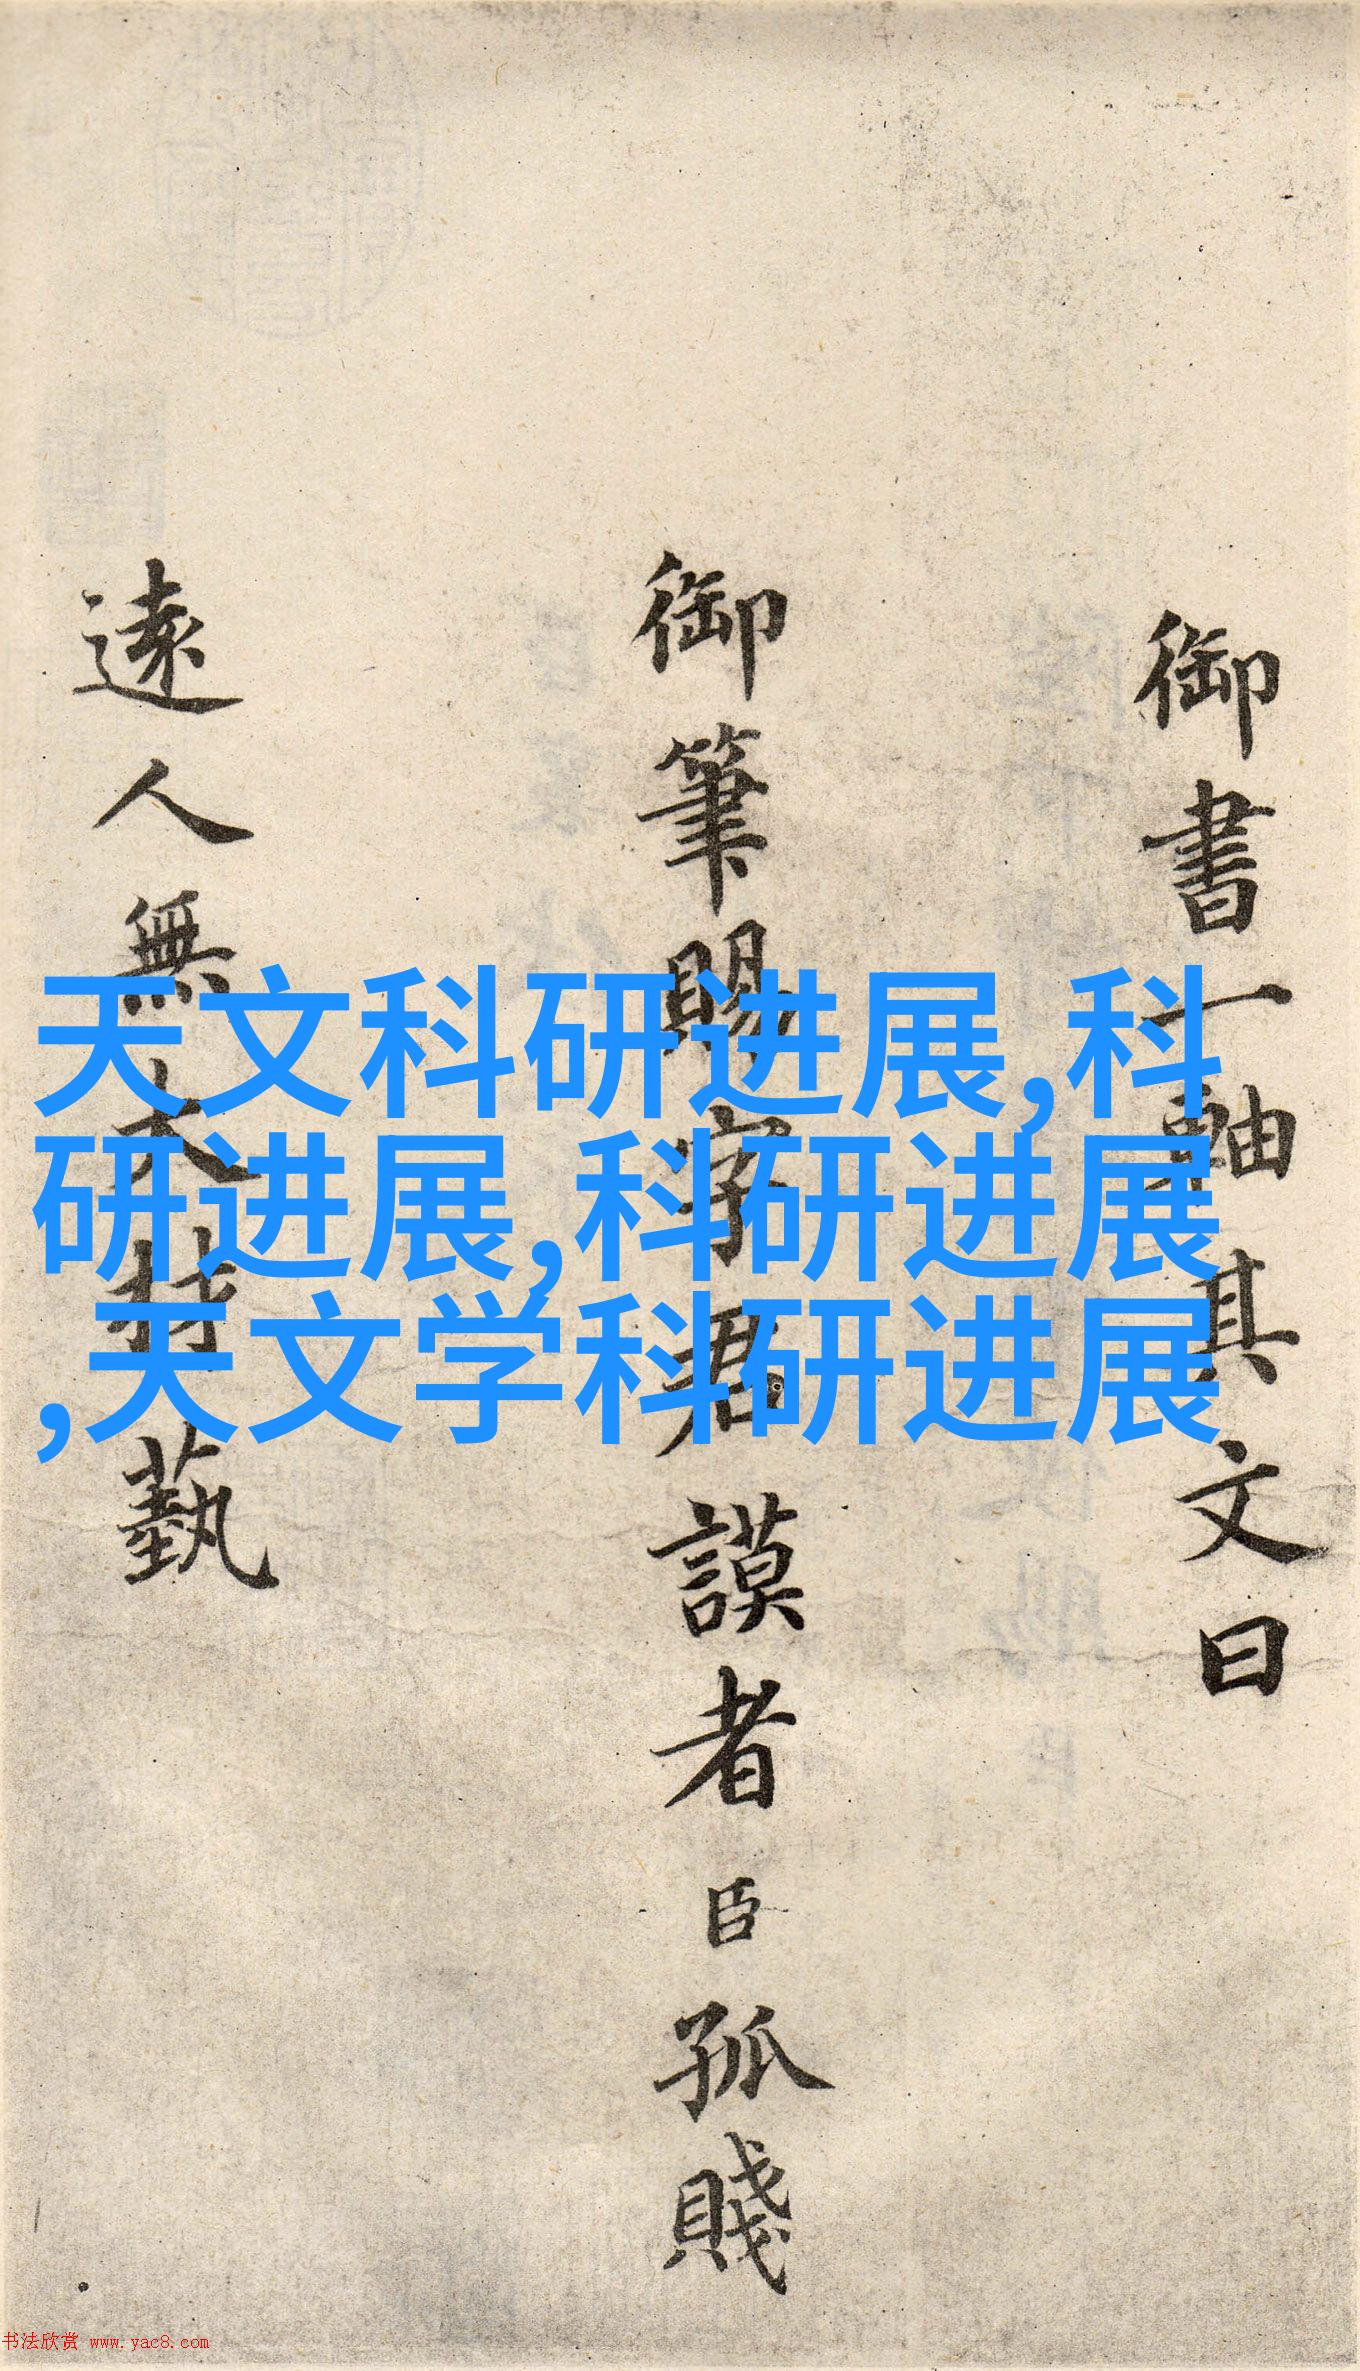 御書一軸其文曰
御筆賜字君謨者臣孤賤
遠人無大材藝
天文科研进展,科
研进展,科研进展
,天文学科研进展
书法欣赏 www.yac8.com